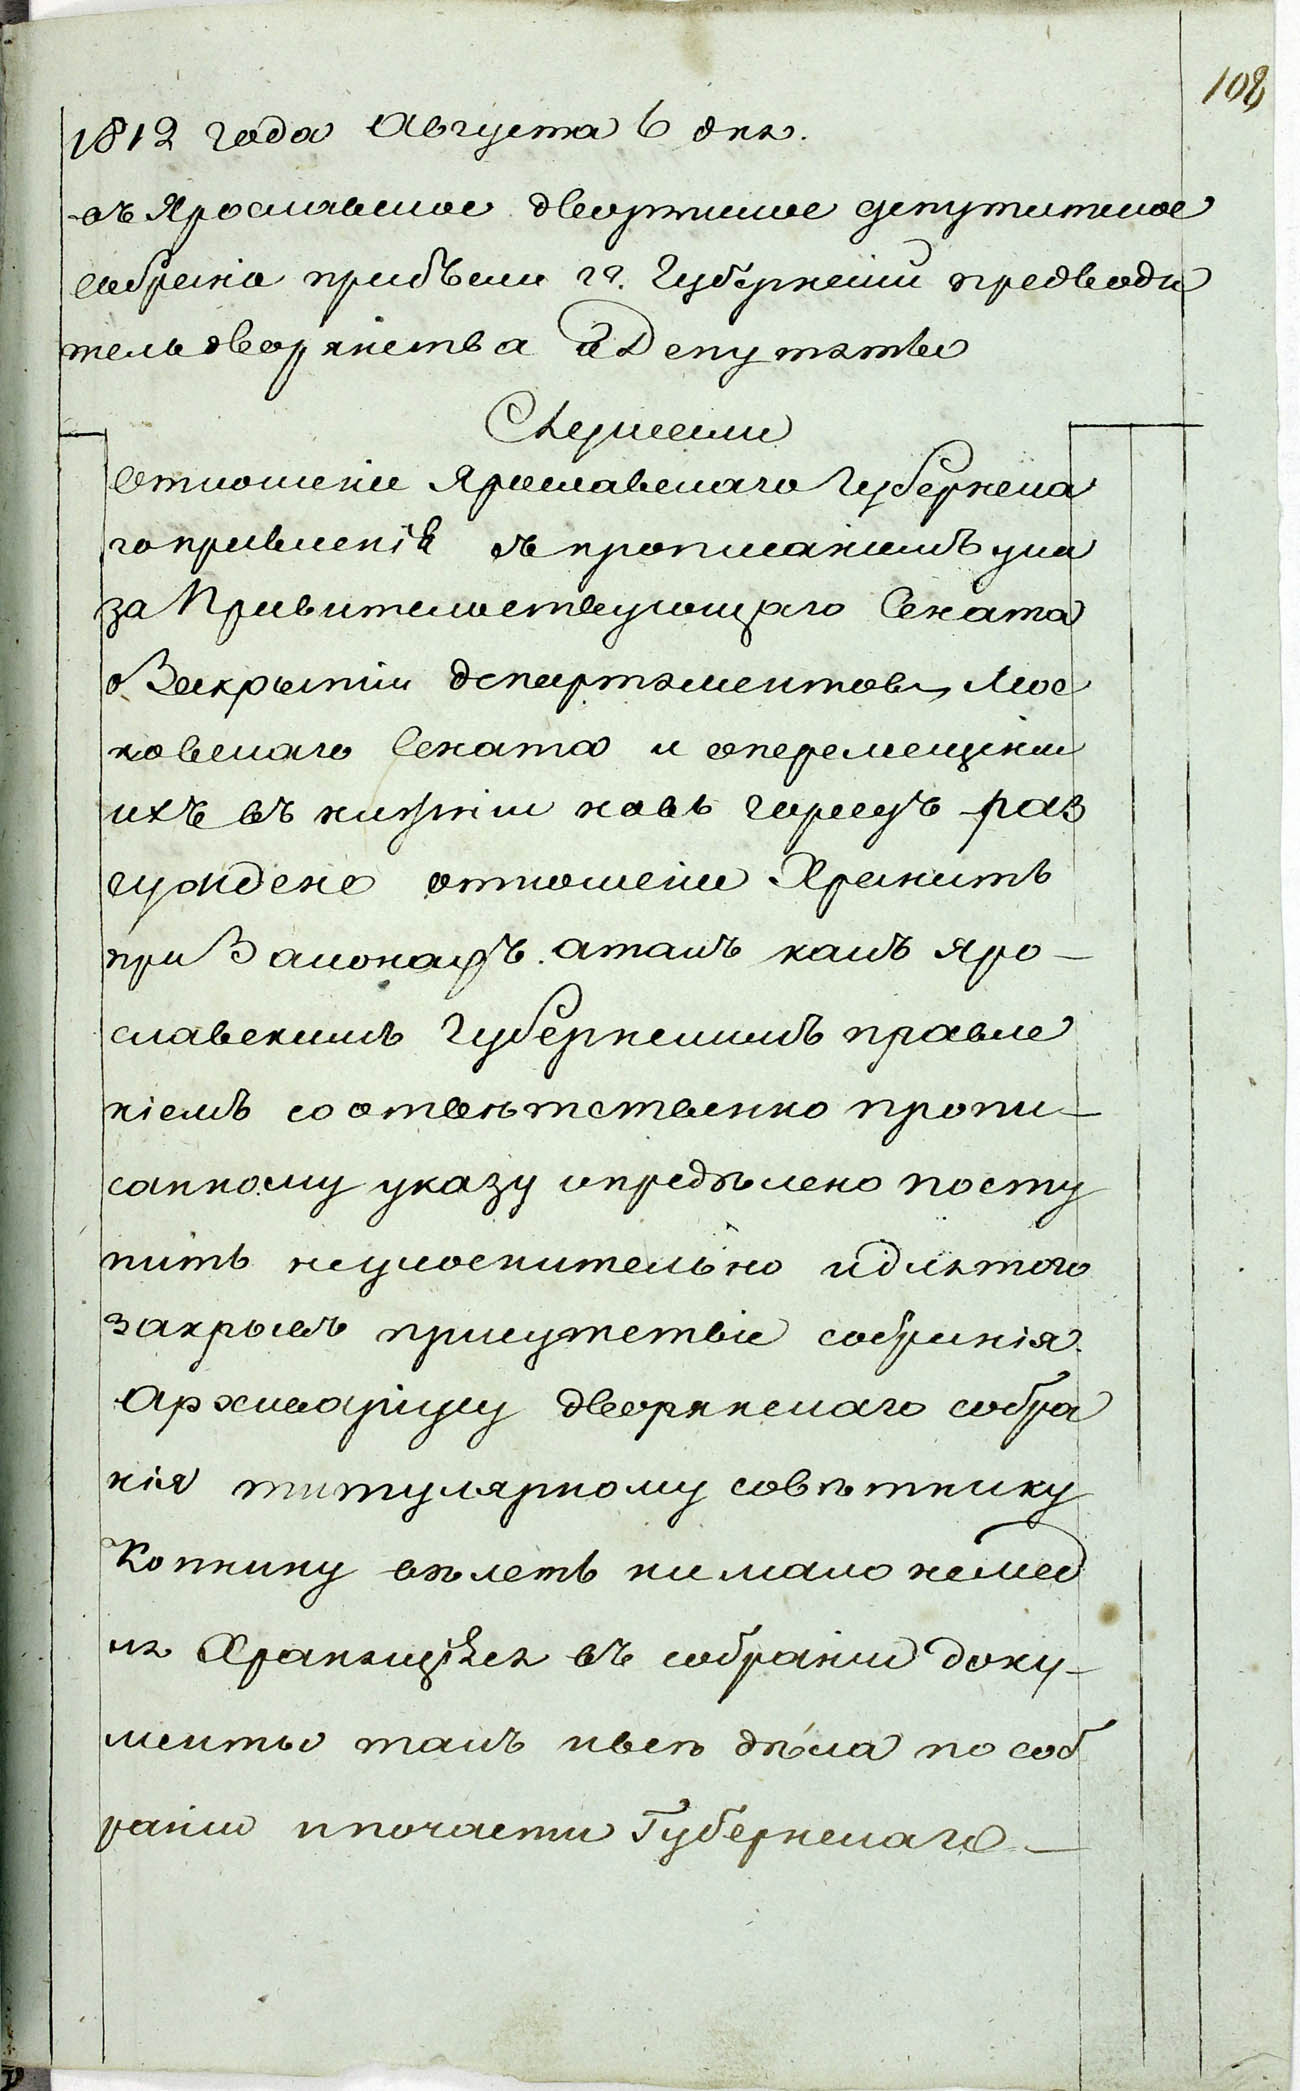 108
1812 года Августа 6 дня.
въ Ярославское дворянское депутатское
собрание прибыли гг. Губернский предводи
тель дворянства и Депутаты
Слушали
Отношение Ярославскаго Губернска
го правления съ прописаниемъ ука
за Правительствующаго Сената
о Закрытии департаментовъ Мос
ковскаго Сената и о перемещении
ихъ въ нижний новъ городъ раз
суждено отношение Хранить
при Законахъ. а такъ какъ Яро–
славскимъ Губернскимъ правле
ніемъ соответственно пропи–
санному указу определено посту
пить неукоснительно и для того
закрывъ присутствие собранія.
Архивариусу дворянскаго собра
нія титулярному советнику
Копнину велеть ни мало немед
ля Хранящіяся въ собрании доку–
менты такъ и все дела по соб
рании и по части Губернскаго –